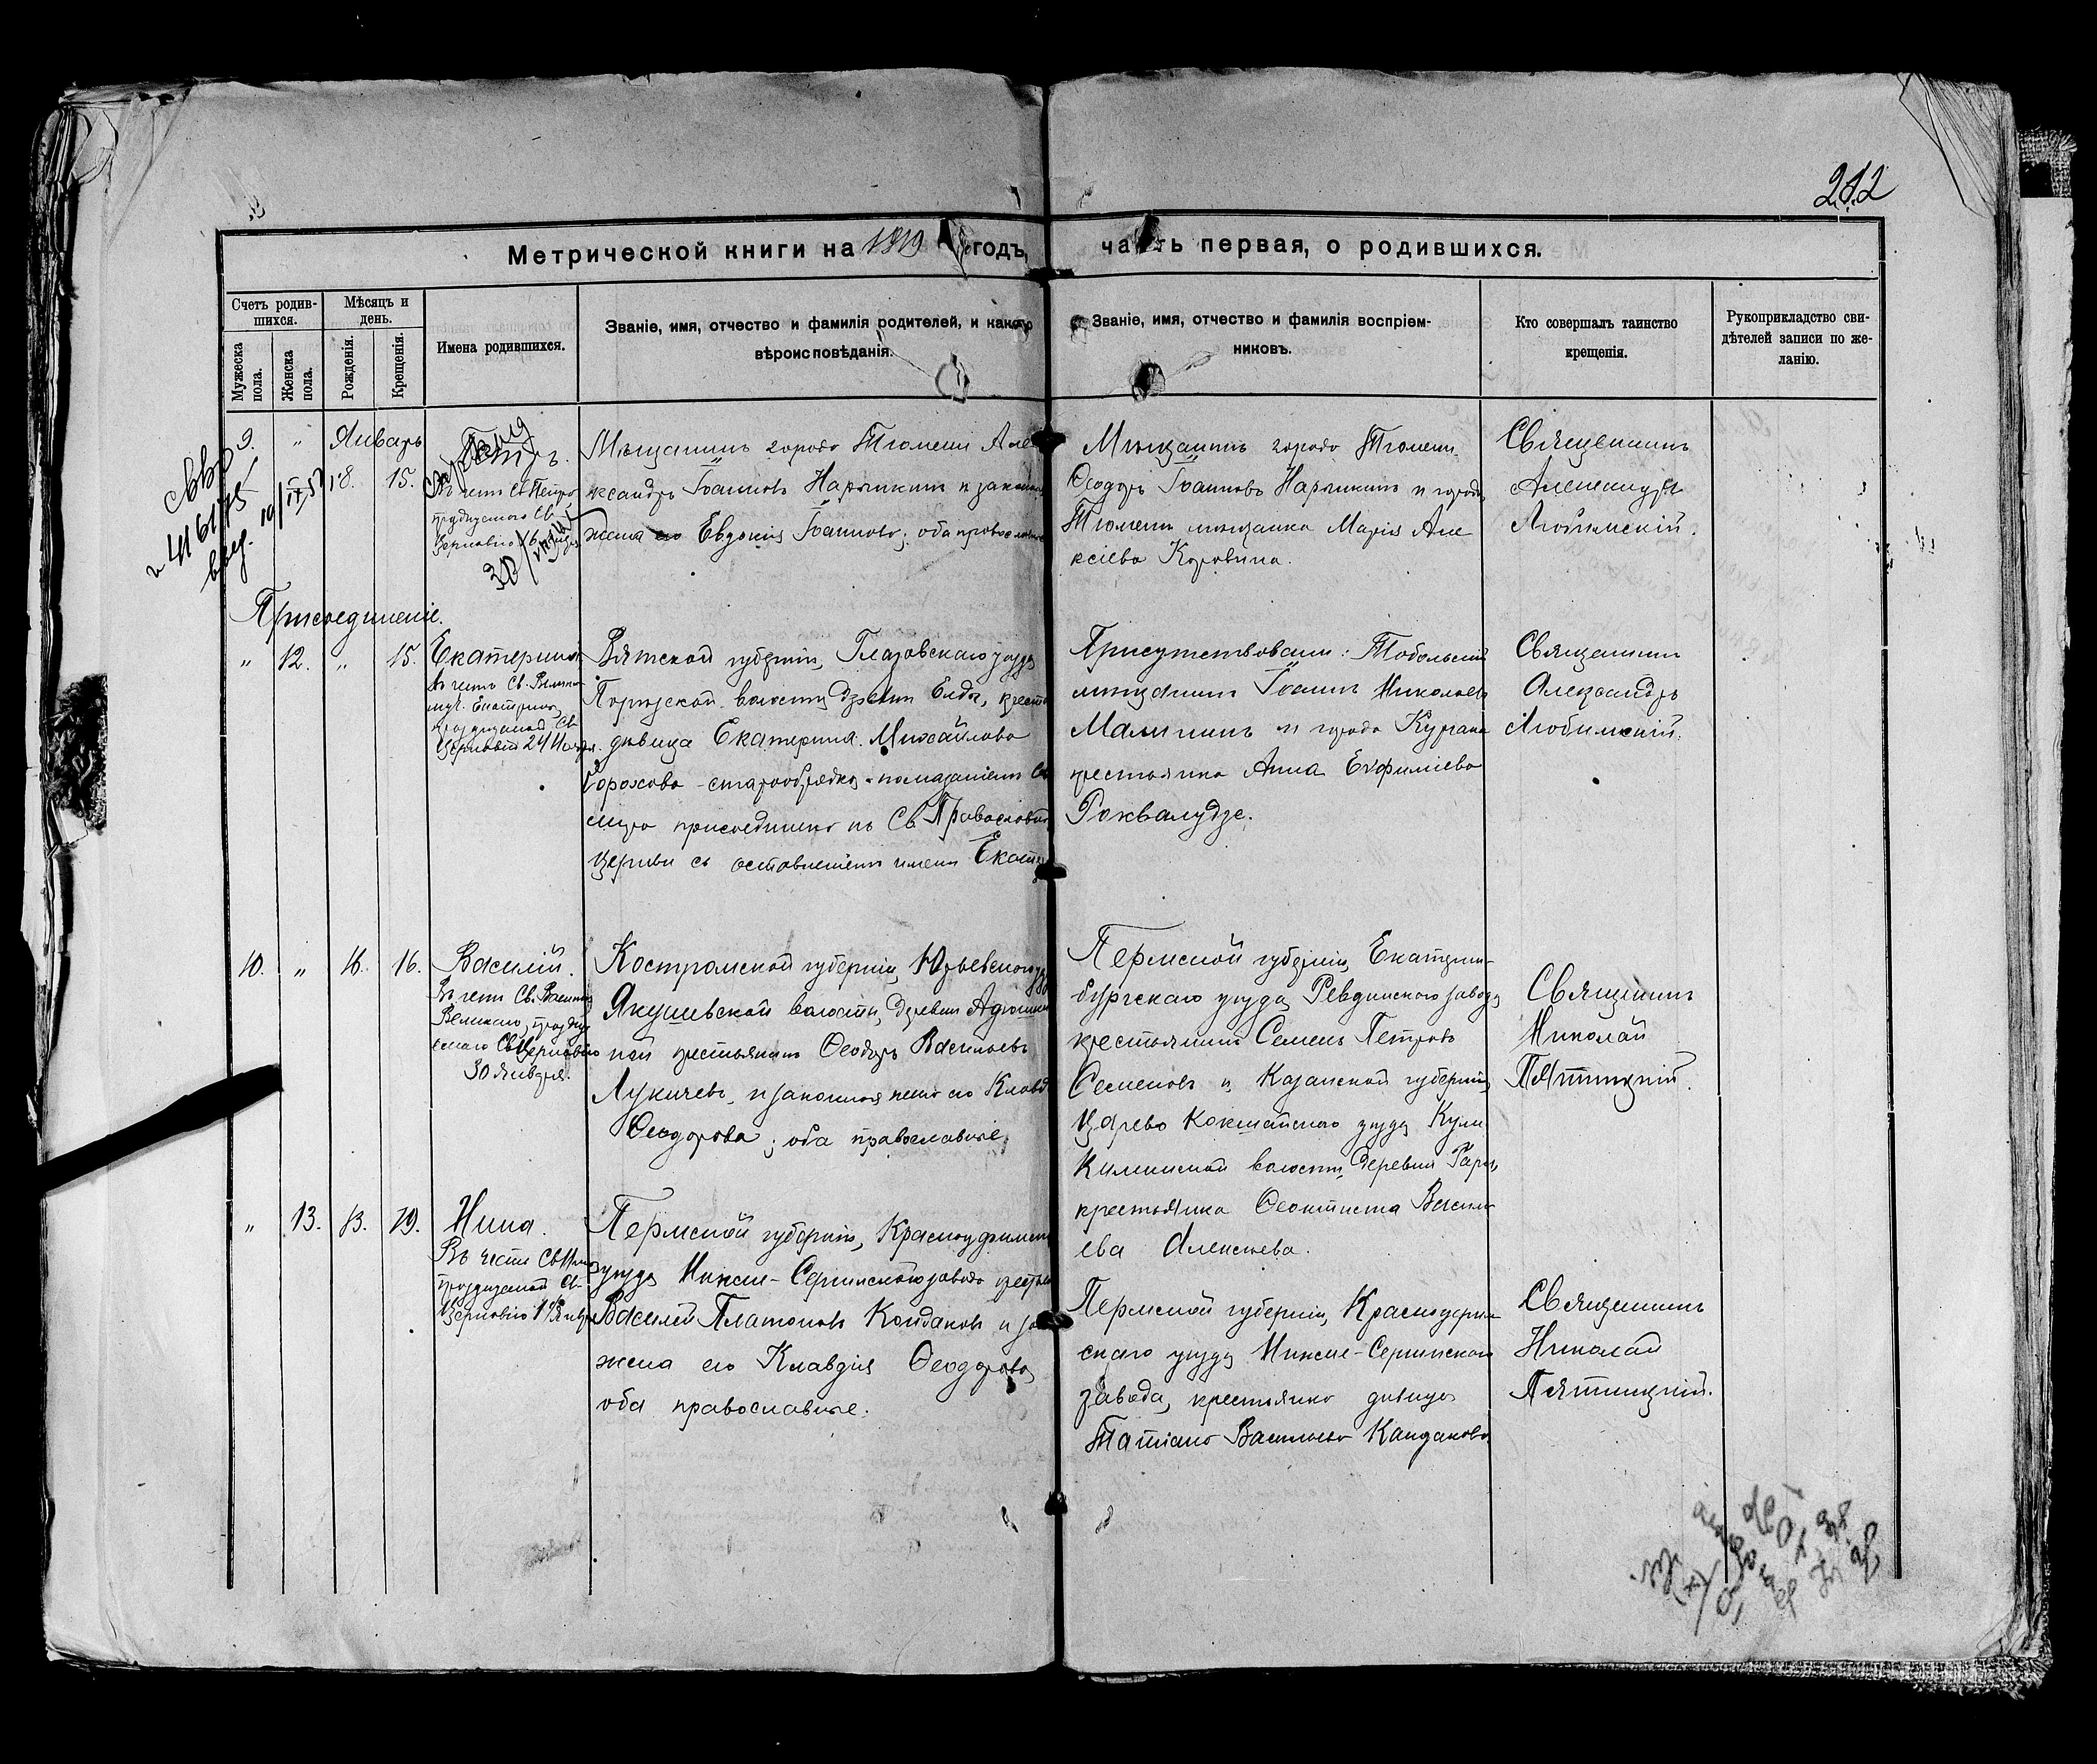 212
Метрической книги на 1919 годъ, часть первая, о родившихся.
Счетъ родив-
шихся.
Мужеска
пола.
Женска
пола.
Мѣсяцъ и
день.
Рожденія.
Крещенія.
Имена родившихся.
Званіе, имя, отчество и фамилія родителей, и какого
вѣроисповѣданія.
Званіе, имя, отчество и фамилія воспріем-
никовъ.
Кто совершалъ таинство
крещенія.
Рукоприкладство сви-
дѣтелей записи по же-
ланію.
9. " Январь
8. 15.
Петръ.
Въ честь Св. Петра,
празднуемаго Св.
Церковію 16
Мѣщанинъ города Тюмени Але
ксандръ Іоанновъ Нарыкинъ и законная
жена его Евдокия Іоаннова; оба православные
Мѣщанинъ города Тюмени
Ѳеодоръ Іоанновъ Нарыкинъ и города
Тюмени мѣщанка Марія Але
ксіева Коровина.
Священникъ
Александръ
Любимскій.
Присоединеніе.
" 12. " 15.
Екатерина
Въ честь Св. Велико
муч. Екатерины,
празднуемой Св.
Церковію 24 Нояб.
Вятской губерніи, Глазовскаго уѣзда
волости, крест
дѣвица Екатерина Михайлова
Горохова - старообрядка - помазаніемъ Св.
мира присоединена къ Св. Православной
Церкви съ оставленіемъ имени Екате
Присутствовали: Тобольскій
мѣщанинъ Іоаннъ Николаевъ
Малининъ и города Кургана
крестьянка Анна Евфиміева
Роквалудзе.
Священникъ
Александръ
Любимскій.
10. " 16. 16.
Василій.
Въ честь Св. Василія
Великаго, празднуе
емаго Св. Церковію
30 Января.
Костромской губерніи, Юрьевскаго уѣзда
Якушевской волости, деревни
ной крестьянинъ Ѳеодоръ Васильевъ
Лукичевъ, и законная жена его Клавд
Ѳеодорова; оба православные.
Пермской губерніи, Екатерин-
бургскаго уѣзда, Ревдинскаго завода
крестьянинъ Семенъ Петровъ
Семеновъ и Казанской губерніи,
Царево Кокшайскаго уѣзда
волости, деревни
крестьянка Ѳеоктиста Василь
ева Алексѣева.
Священникъ
Николай
Пятницкій.
" 13. 13. 19.
Нина.
Въ честь Св. Нины
празднуемой Св.
Церковію 14 Янв.
Пермской губерніи, Красноуфимск
уѣзда Нижне-Сергинскаго завода крестьян
Василій Платоновъ Кондаковъ и зак
жена его Клавдія Ѳеодорова,
оба православные.
Пермской губерніи, Красноуфим
скаго уѣзда Нижне-Сергинскаго
завода, крестьянка дѣвица
Татіана Васильева Кандакова.
Священникъ
Николай
Пятницкій.